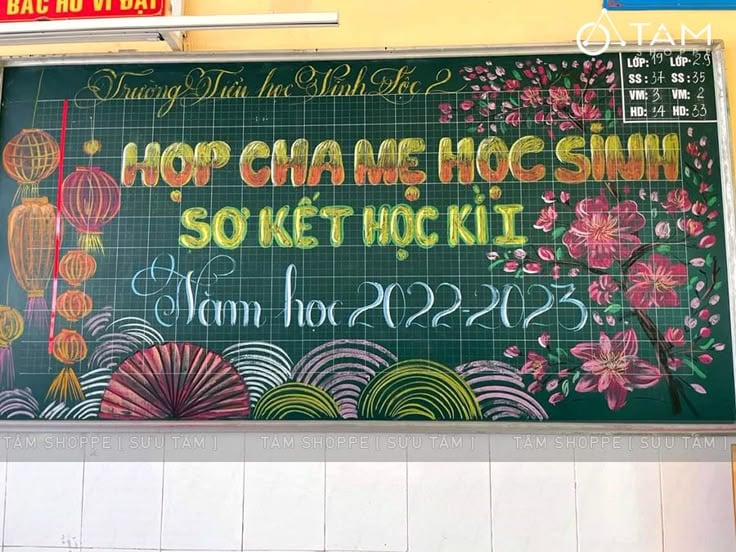 BÁC HỒ VĨ ĐẠI
TAM
SHOPPE
Trường Tiểu học Vĩnh Lộc 2
LỚP: 19 LỚP: 29
SS: 37 SS: 35
VM: 3 VM: 2
HD: 34 HD: 33
HỌP CHA MẸ HỌC SINH
SƠ KẾT HỌC KÌ I
Năm học 2022-2023
TÂM SHOPPE [ SƯU TẦM ] TÂM SHOPPE [ SƯU TẦM ] TÂM SHOPPE [ SƯU TẦM ]